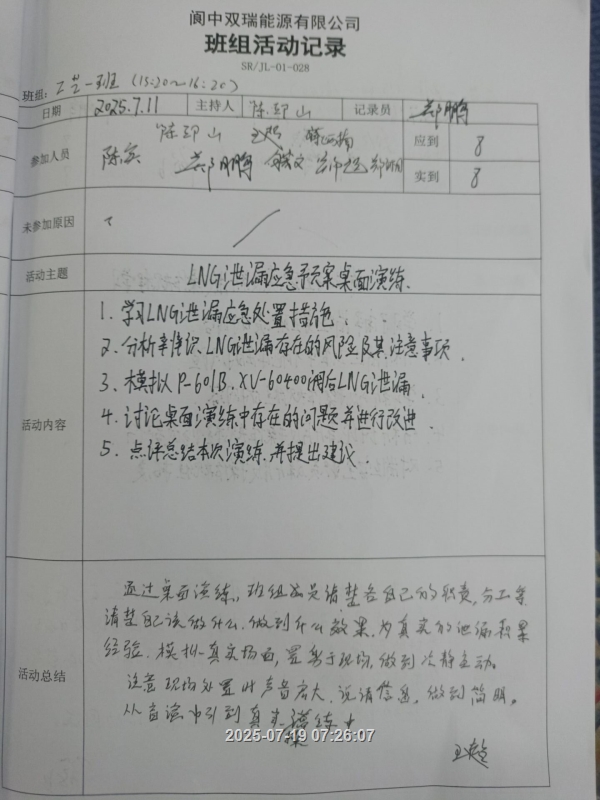 阆中双瑞能源有限公司
班组活动记录
SR/JL-01-028
班组：工艺一班 (15:20~16:20)
日期 2025.7.11 主持人 陈邛山 记录员 郑鹏
参加人员 陈邛山
陈实 郑鹏
应到 8
实到 8
未参加原因
活动主题 LNG泄漏应急预案桌面演练.
活动内容
1. 学习LNG泄漏应急处置措施.
2. 分析辛识LNG泄漏存在的风险及其注意事项.
3. 模拟P-601B.XV-60400阀后LNG泄漏.
4. 讨论桌面演练中存在的问题并进行改进.
5. 点评总结本次演练.并提出建议.
活动总结
通过桌面演练,班组成员清楚各自己的职责,分工
清楚自己该做什么.做到什么效果.为真实的泄漏积累
经验.模拟真实场面,置身于现场,做到冷静主动.
注意现场处置时声音启大.说清信息,做到简明.
从中引到真
2025-07-19 07:26:07